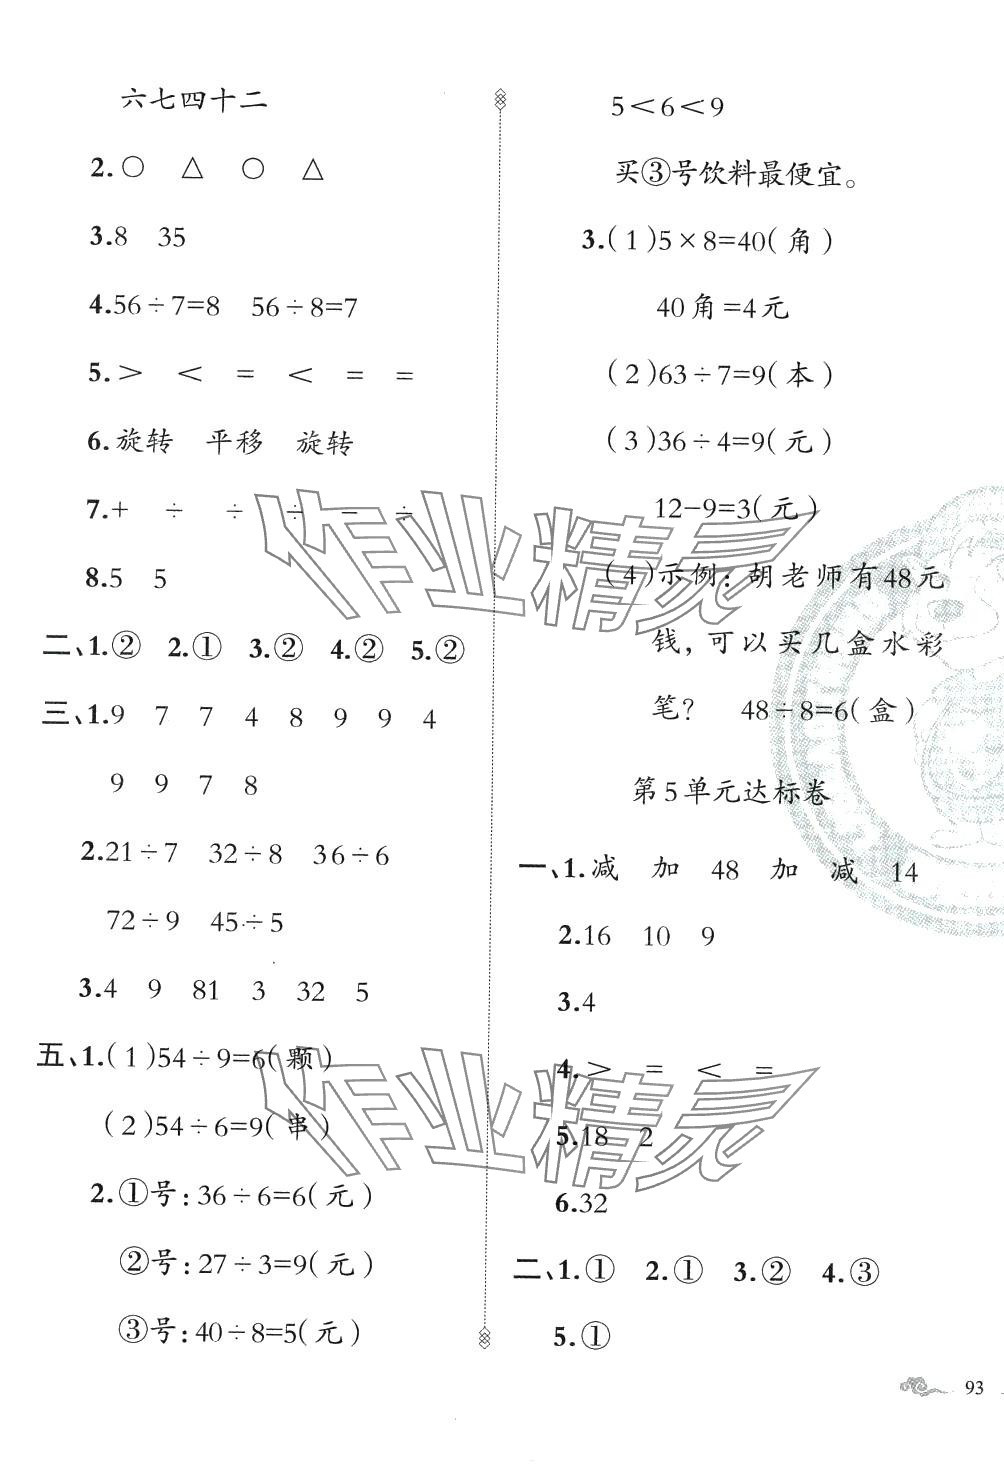 六七四十二
2.○ △ ○ △
3.8 35
4.56÷7=8 56÷8=7
5.> < = < = =
6.旋转 平移 旋转
7.+ ÷ ÷ ÷ － ÷
8.5 5
二、1.② 2.① 3.② 4.② 5.②
三、1.9 7 7 4 8 9 9 4
9 9 7 8
2.21÷7 32÷8 36÷6
72÷9 45÷5
3.4 9 81 3 32 5
五、1.(1)54÷9=6(颗)
(2)54÷6=9(串)
2.①号:36÷6=6(元)
②号:27÷3=9(元)
③号:40÷8=5(元)
5<6<9
买③号饮料最便宜。
3.(1)5×8=40(角)
40角=4元
(2)63÷7=9(本)
(3)36÷4=9(元)
12-9=3(元)
(4)示例:胡老师有48元
钱,可以买几盒水彩
笔? 48÷8=6(盒)
第5单元达标卷
一、1.减 加 48 加 减 14
2.16 10 9
3.4
4.> = < =
5.18 2
6.32
二、1.① 2.① 3.② 4.③
5.①
93
作业精灵
作业精灵